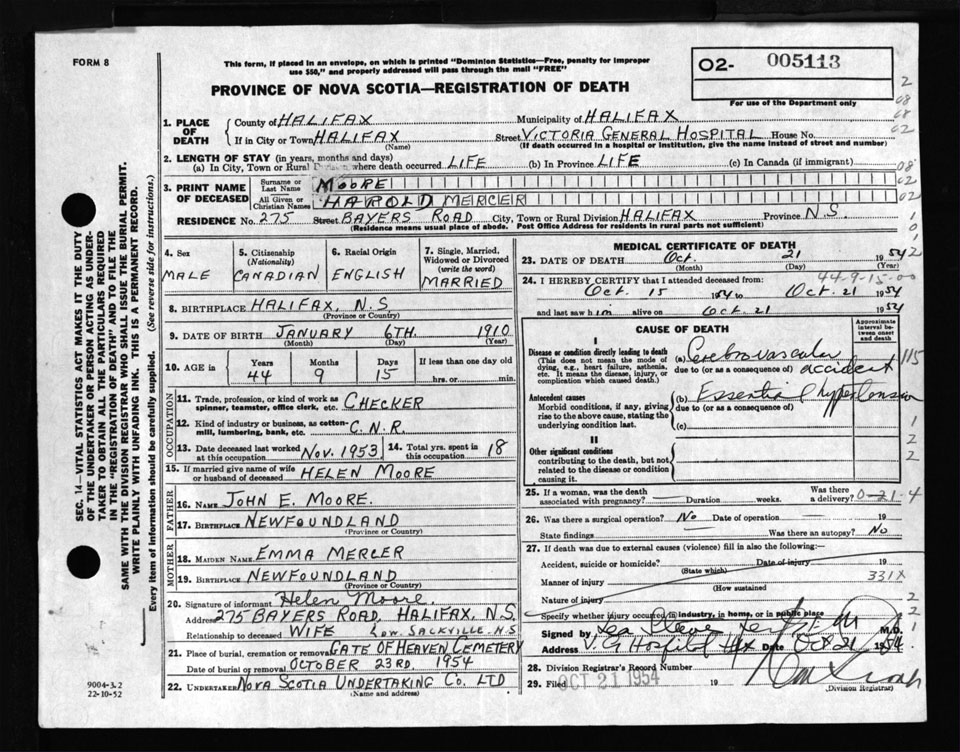 FORM 8
This form, if placed in an envelope, on which is printed "Dominion Statistics—Free, penalty for improper
use $50," and properly addressed will pass through the mail "FREE"
PROVINCE OF NOVA SCOTIA—REGISTRATION OF DEATH
O2- 005113
For use of the Department only
1. PLACE OF DEATH County of HALIFAX Municipality of HALIFAX
If in City or Town HALIFAX (Name) Street VICTORIA GENERAL HOSPITAL House No.
(If death occurred in a hospital or institution, give the name instead of street and number)
2. LENGTH OF STAY (in years, months and days)
(a) In City, Town or Rural Division where death occurred LIFE (b) In Province LIFE (c) In Canada (if immigrant)
3. PRINT NAME OF DECEASED Surname or Last Name MOORE
All Given or Christian Names HAROLD MERCER
RESIDENCE No. 275 Street BAYERS ROAD City, Town or Rural Division HALIFAX Province N.S.
(Residence means usual place of abode. Post Office Address for residents in rural parts not sufficient)
4. Sex MALE
5. Citizenship (Nationality) CANADIAN
6. Racial Origin ENGLISH
7. Single, Married, Widowed or Divorced (write the word) MARRIED
8. BIRTHPLACE HALIFAX, N.S.
(Province or Country)
9. DATE OF BIRTH JANUARY 6TH. 1910
(Month) (Day) (Year)
10. AGE in Years 44 Months 9 Days 15 If less than one day old hrs. or min.
OCCUPATION
11. Trade, profession, or kind of work as spinner, teamster, office clerk, etc. CHECKER
12. Kind of industry or business, as cotton-mill, lumbering, bank, etc. C.N.R.
13. Date deceased last worked at this occupation NOV. 1953 14. Total yrs. spent in this occupation 18
15. If married give name of wife or husband of deceased HELEN MOORE
FATHER
16. NAME JOHN E. MOORE.
17. BIRTHPLACE NEWFOUNDLAND
(Province or Country)
MOTHER
18. MAIDEN NAME EMMA MERCER
19. BIRTHPLACE NEWFOUNDLAND
(Province or Country)
20. Signature of informant Helen Moore.
Address 275 BAYERS ROAD, HALIFAX, N.S.
Relationship to deceased WIFE LOW. SACKVILLE N.S
21. Place of burial, cremation or removal GATE OF HEAVEN CEMETERY
Date of burial or removal OCTOBER 23RD. 1954
22. UNDERTAKER NOVA SCOTIA UNDERTAKING CO. LTD
(Name and address)
MEDICAL CERTIFICATE OF DEATH
23. DATE OF DEATH Oct. 21 1954
(Month) (Day) (Year)
44-9-15-00
24. I HEREBY CERTIFY that I attended deceased from:
Oct. 15 1954 to Oct. 21 1954
and last saw him alive on Oct. 21 1954
CAUSE OF DEATH
Approximate interval between onset and death
I
Disease or condition directly leading to death (a) Cerebrovascular
(This does not mean the mode of dying, e.g., heart failure, asthenia, etc. It means the disease, injury, or complication which caused death.) due to (or as a consequence of) accident
Antecedent causes (b) Essential hypertension
Morbid conditions, if any, giving rise to the above cause, stating the underlying condition last. due to (or as a consequence of)
(c)
II
Other significant conditions
contributing to the death, but not related to the disease or condition causing it.
25. If a woman, was the death associated with pregnancy? Duration weeks. Was there a delivery?
26. Was there a surgical operation? No Date of operation 19
State findings Was there an autopsy? No
27. If death was due to external causes (violence) fill in also the following:
Accident, suicide or homicide? Date of injury 19
(State which)
Manner of injury 331X
(How sustained)
Nature of injury
Specify whether injury occurred in industry, in home, or in public place
Signed by M.D.
Address V.G Hospital Hfx Date Oct 21 1954.
28. Division Registrar's Record Number
29. Filed OCT 21 1954 19
(Division Registrar)
SEC. 14—VITAL STATISTICS ACT MAKES IT THE DUTY
OF THE UNDERTAKER OR PERSON ACTING AS UNDER-
TAKER TO OBTAIN ALL THE PARTICULARS REQUIRED
IN THE "REGISTRATION OF DEATH" AND TO FILE THE
SAME WITH THE DIVISION REGISTRAR WHO SHALL ISSUE THE BURIAL PERMIT.
WRITE PLAINLY WITH UNFADING INK. THIS IS A PERMANENT RECORD.
Every item of information should be carefully supplied. (See reverse side for instructions.)
9004-3.2
22-10-52